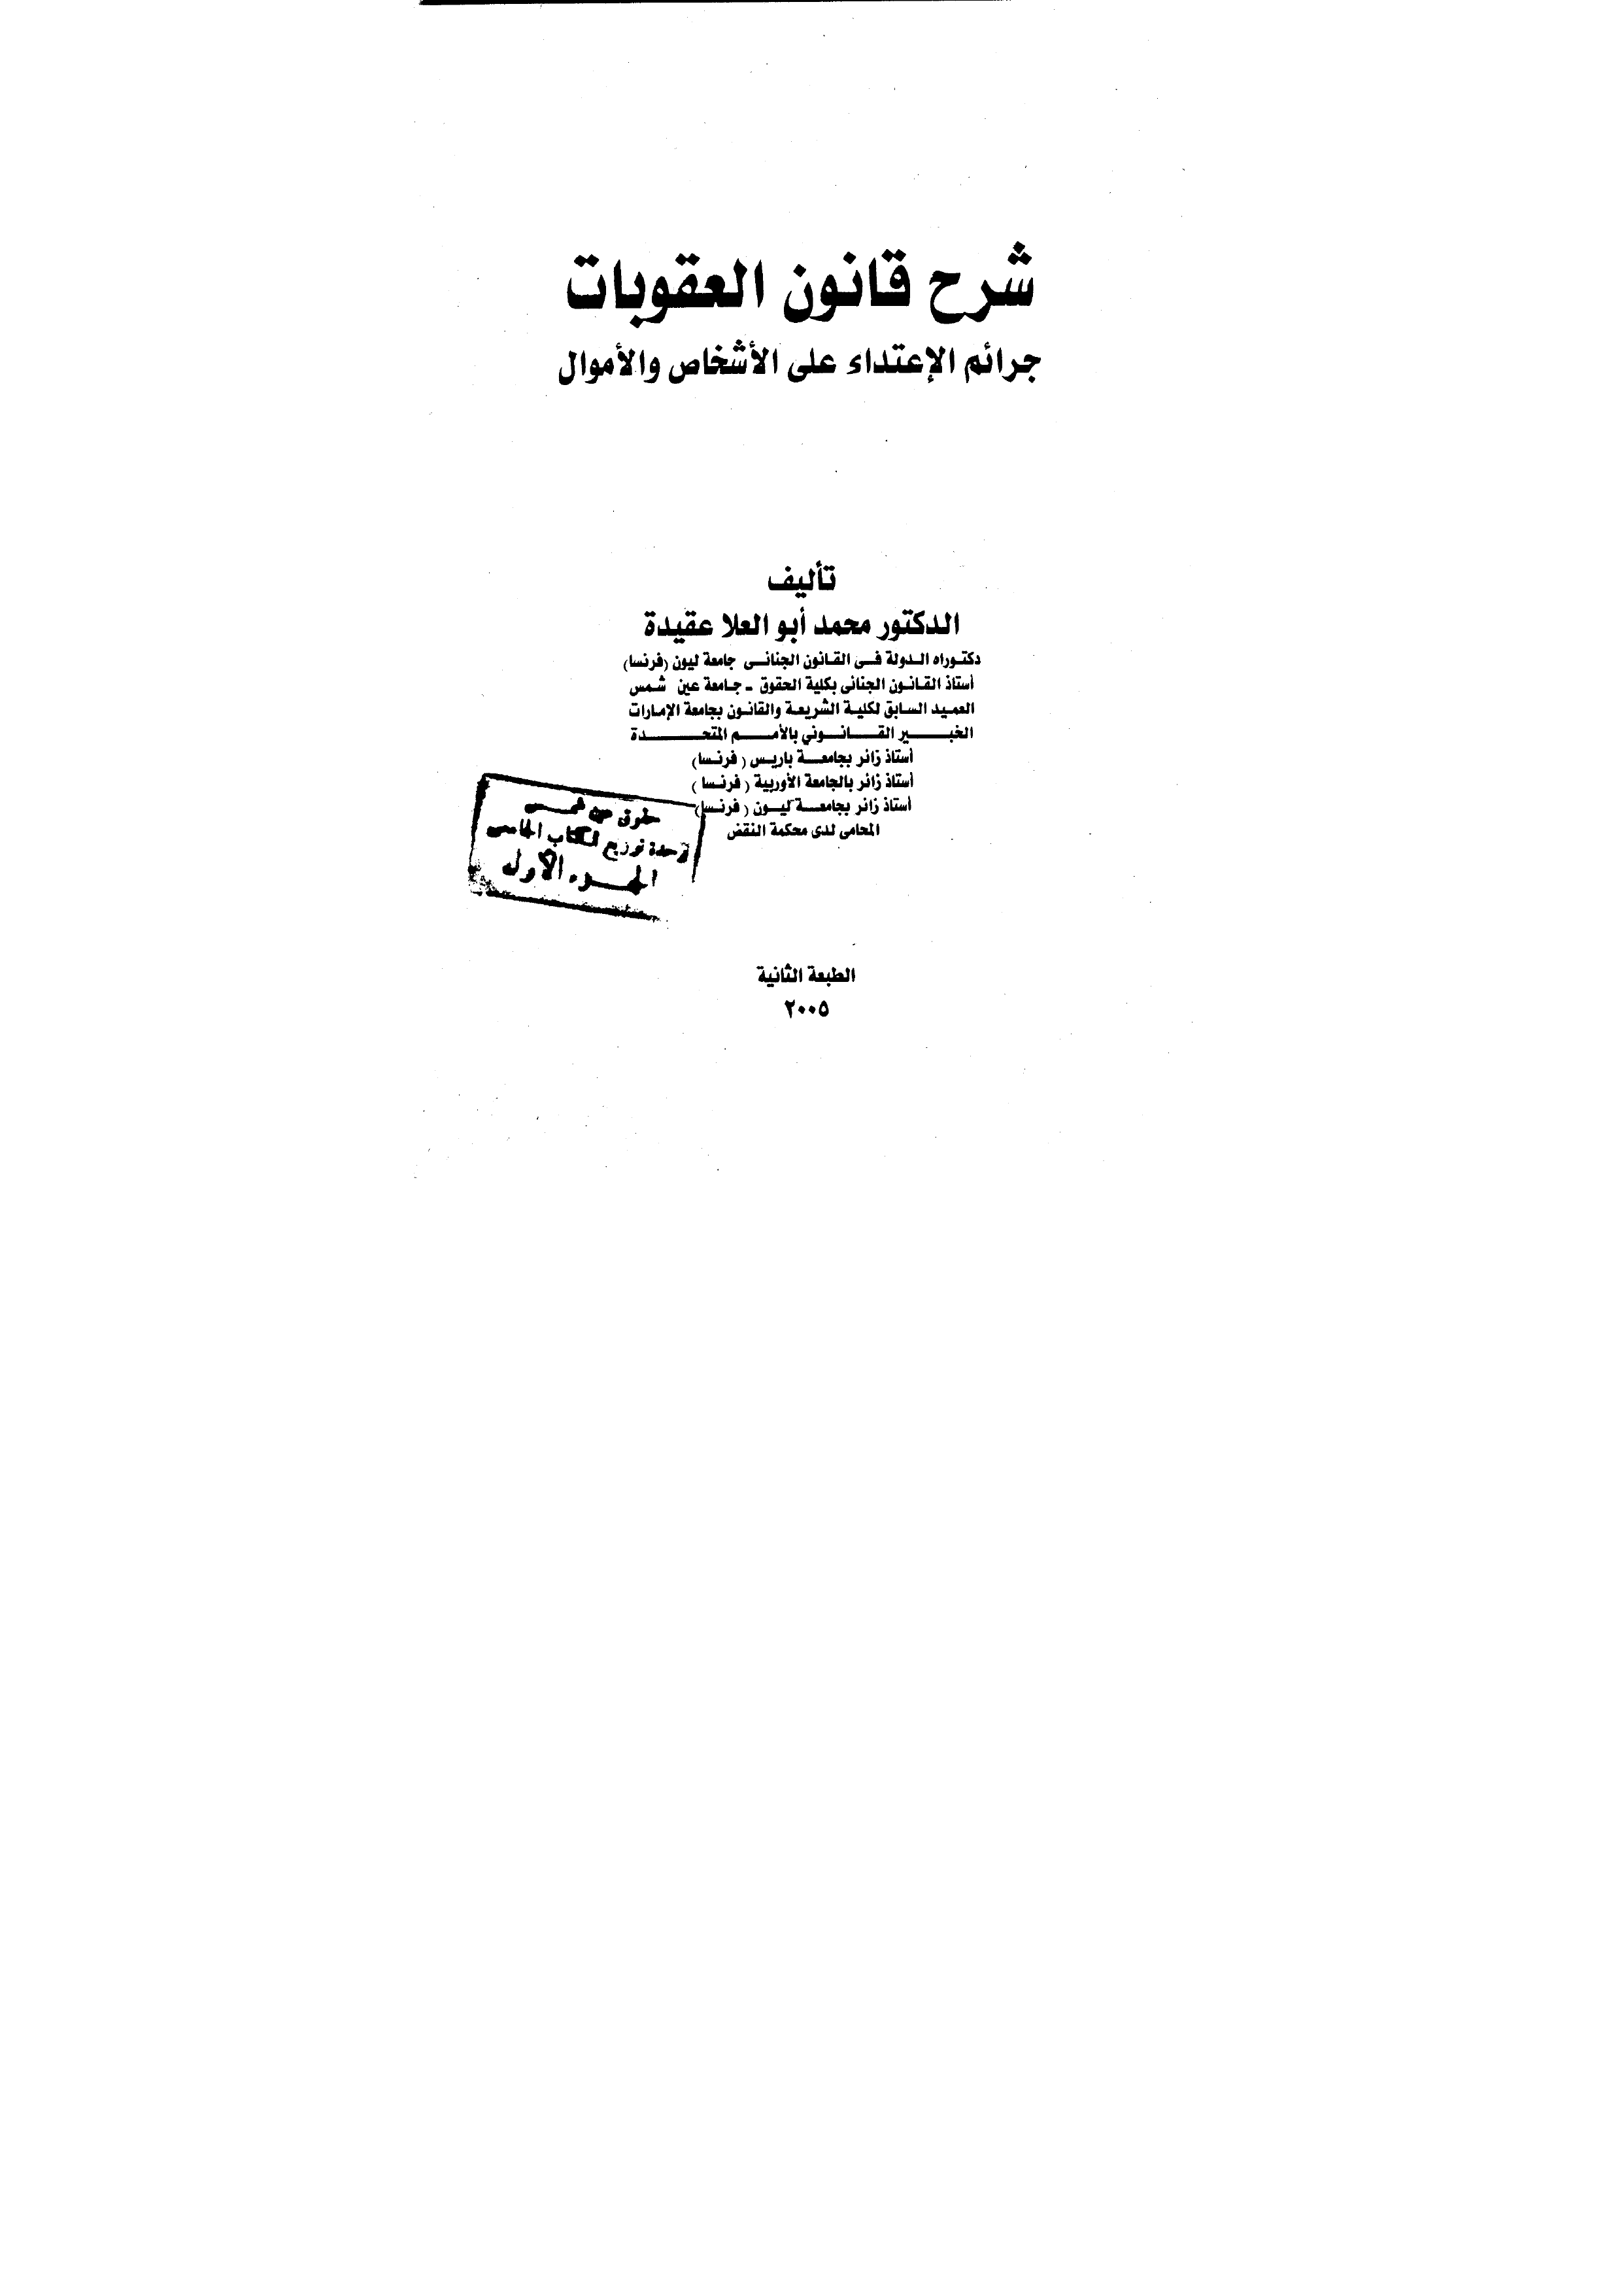 شرح قانون العقوبات
جرائم الإعتداء على الأشخاص والأموال
تأليف
الدكتور محمد أبو العلا عقيدة
دكتوراه الدولة فى القانون الجنائى جامعة ليون (فرنسا)
أستاذ القانون الجنائى بكلية الحقوق - جامعة عين شمس
العميد السابق لكلية الشريعة والقانون بجامعة الإمارات
الخبير القانوني بالأمم المتحدة
أستاذ زائر بجامعة باريس (فرنسا)
أستاذ زائر بالجامعة الأوربية (فرنسا)
أستاذ زائر بجامعة ليون (فرنسا)
المحامى لدى محكمة النقض
حقوق عين شمس
وحدة توزيع الكتاب الجامعى
الجزء الأول
الطبعة الثانية
٢٠٠٥